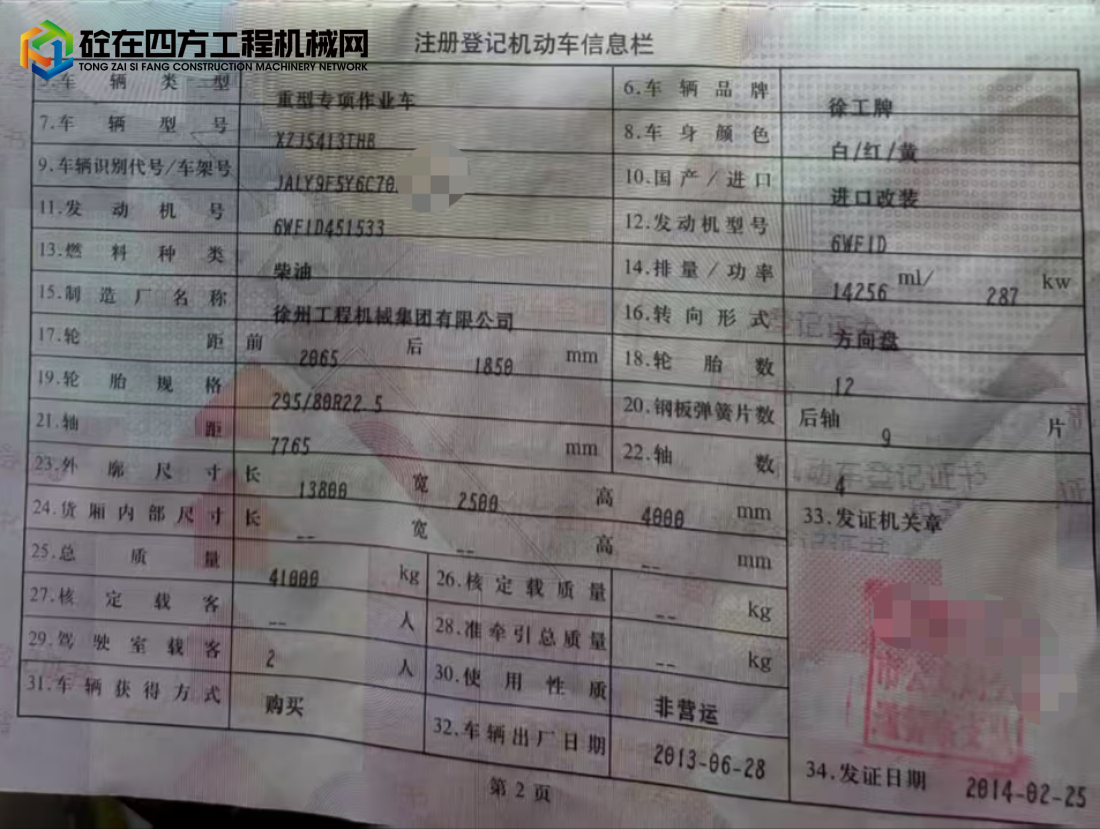 砼在四方工程机械网
TONG ZAI SI FANG CONSTRUCTION MACHINERY NETWORK
注册登记机动车信息栏
5.车辆类型 重型专项作业车 6.车辆品牌 徐工牌
7.车辆型号 XZJ5413THB 8.车身颜色 白/红/黄
9.车辆识别代号/车架号 JALY9F5Y6C70 10.国产/进口 进口改装
11.发动机号 6WF1D451533 12.发动机型号 6WF1D
13.燃料种类 柴油 14.排量/功率 14256 ml/ 287 kw
15.制造厂名称 徐州工程机械集团有限公司 16.转向形式 方向盘
17.轮距 前 2065 后 1850 mm 18.轮胎数 12
19.轮胎规格 295/80R22.5 20.钢板弹簧片数 后轴 9 片
21.轴距 7765 mm 22.轴数 4
23.外廓尺寸 长 13800 宽 2500 高 4000 mm 33.发证机关章
24.货厢内部尺寸 长 -- 宽 -- 高 -- mm
25.总质量 41000 kg 26.核定载质量 -- kg
27.核定载客 -- 人 28.准牵引总质量 -- kg
29.驾驶室载客 2 人 30.使用性质 非营运
31.车辆获得方式 购买 32.车辆出厂日期 2013-06-28 34.发证日期 2014-02-25
第2页